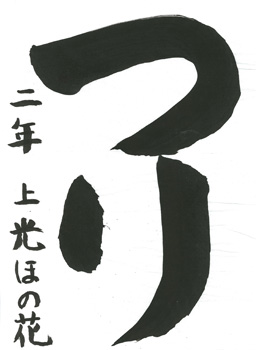 つり
二年 上光ほの花